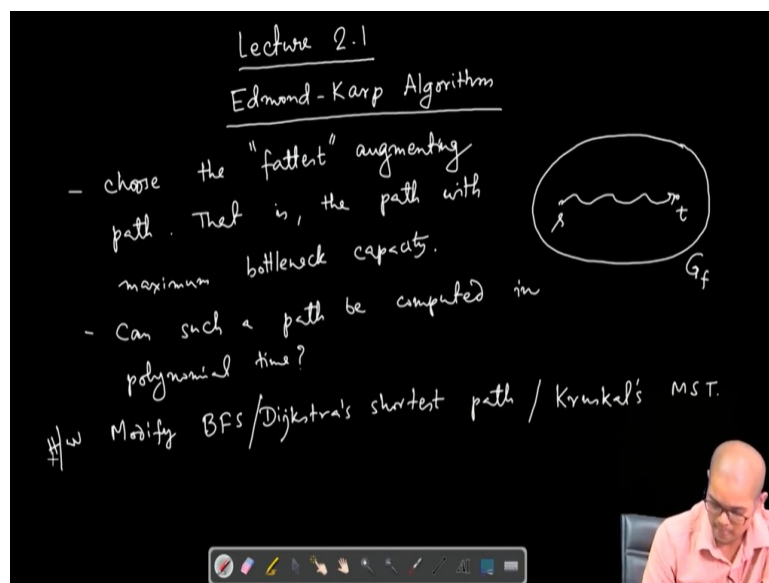 Lecture 2.1
Edmond-Karp Algorithm
- choose the "fattest" augmenting
path. That is, the path with
maximum bottleneck capacity.
- Can such a path be computed in
polynomial time?
H/W Modify BFS/Dijkstra's shortest path / Kruskal's MST.
s t
G_f
AI